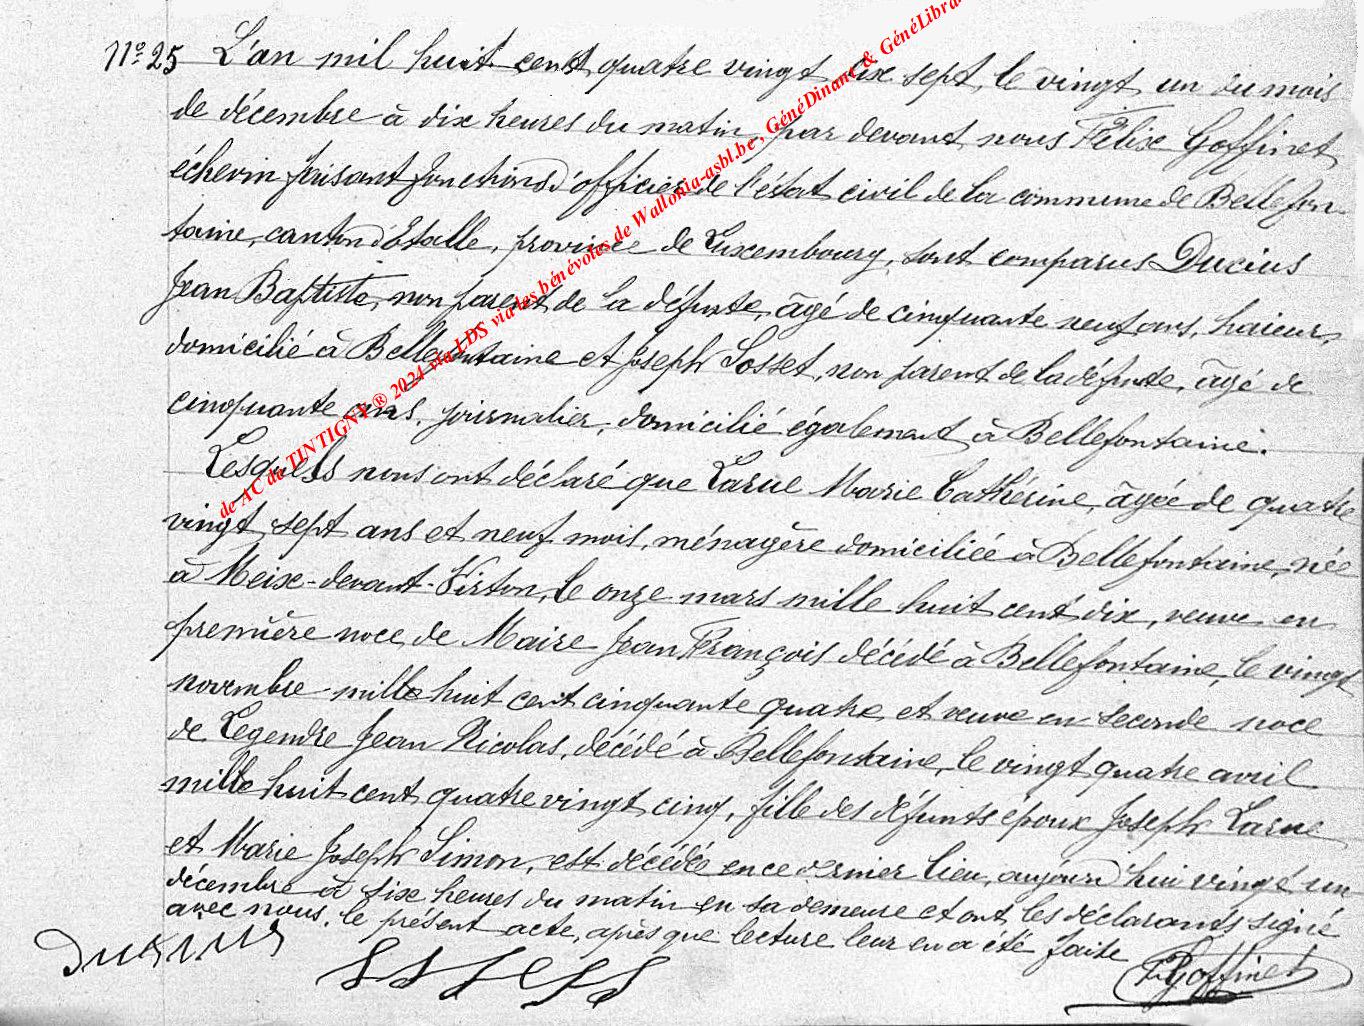 N° 25 L'an mil huit cent quatre vingt dix sept, le vingt un du mois
de décembre à dix heures du matin, par devant nous Félix Goffinet
échevin faisant fonctions d'officier de l'état civil de la commune de Bellefon-
taine, canton d'Etalle, province de Luxembourg, sont comparus Ducius
Jean Baptiste, non parent de la défunte, âgé de cinquante neuf ans,
domicilié à Bellefontaine et Joseph Sosset, non parent de la défunte, âgé de
cinquante ans, journalier, domicilié également à Bellefontaine.
Lesquels nous ont déclaré que Larue Marie Cathérine, âgée de quatre
vingt sept ans et neuf mois, ménagère domiciliée à Bellefontaine, née
à Meix-devant-Virton, le onze mars mille huit cent dix, veuve en
première noce de Maire Jean François décédé à Bellefontaine, le vingt
novembre mille huit cent cinquante quatre et veuve en seconde noce
de Legendre Jean Nicolas, décédé à Bellefontaine, le vingt quatre avril
mille huit cent quatre vingt cinq, fille des défunts époux Joseph Larue
et Marie Joseph Simon, est décédée en ce dernier lieu, aujourd'hui vingt un
décembre à six heures du matin en sa demeure et ont, les déclarants signé
avec nous, le présent acte, après que lecture leur en a été faite
Ducius
F Goffinet
de AC de TINTIGNY ® 2024 via LDS via les bénévoles de Wallonia-asbl.be, GénéDinant & GénéLibra